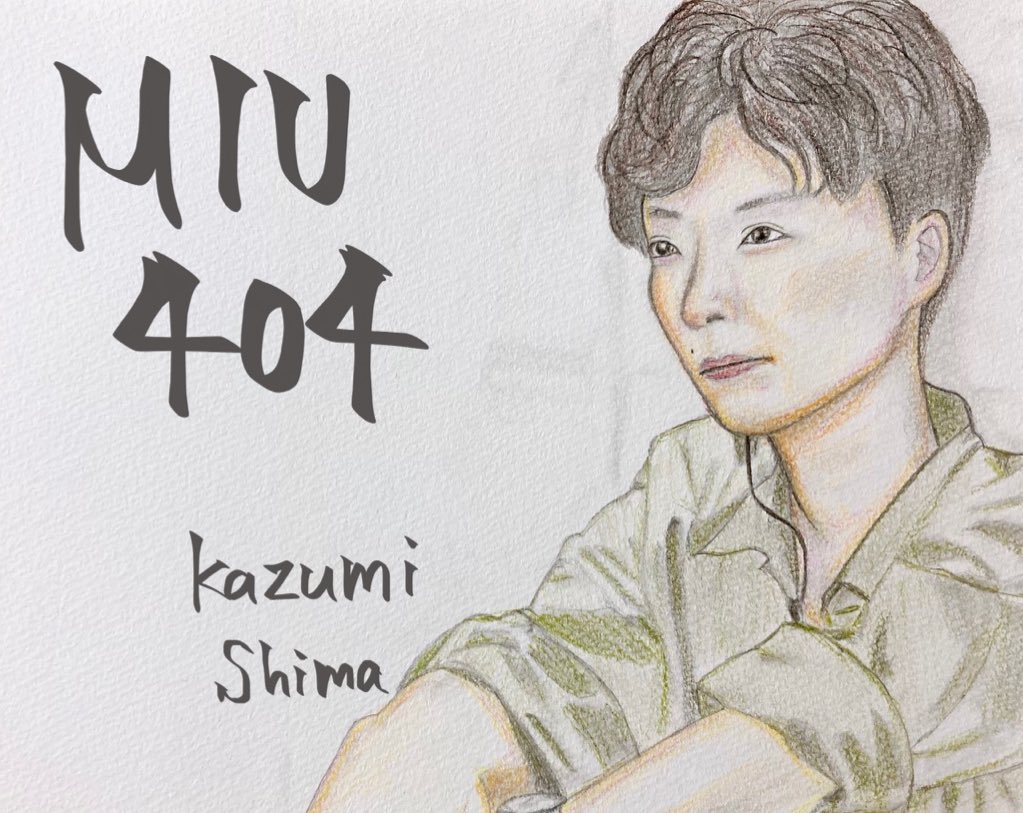 MIU
404
kazumi
Shima